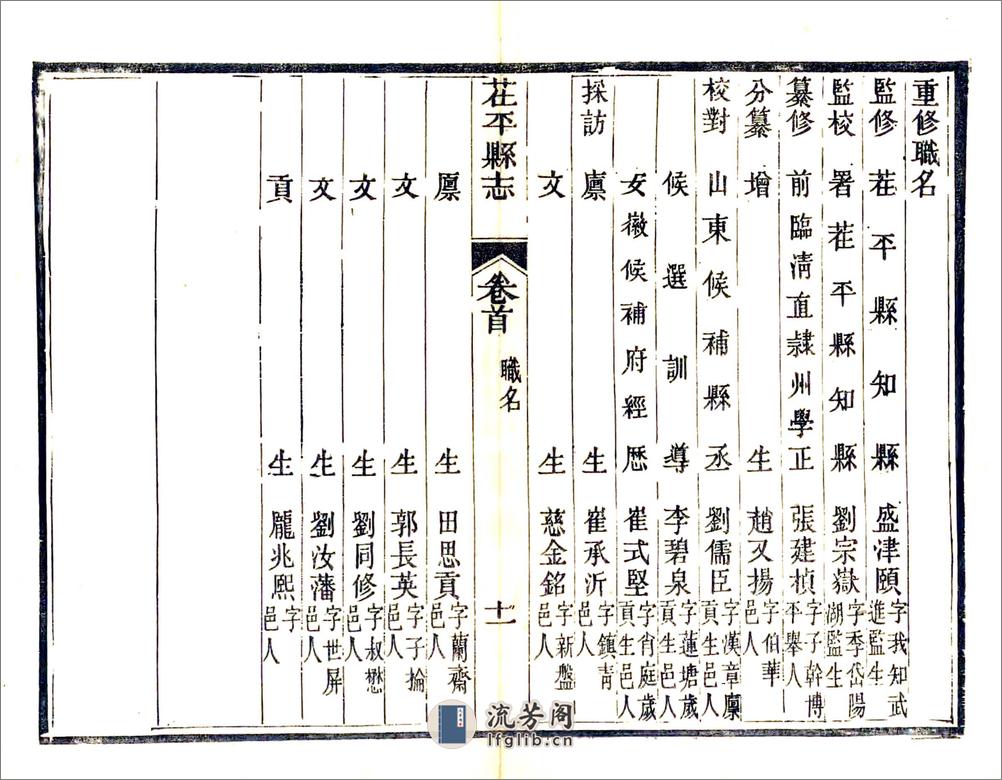 重修職名
監修 茬平縣知縣 盛津頤 字我知武進監生
監校 署茬平縣知縣 劉宗嶽 字季岱陽湖監生
纂修 前臨清直隷州學正 張建楨 字子幹博平舉人
分纂 增生 趙又揚 字伯華邑人
校對 山東候補縣丞 劉儒臣 字漢章廩貢生邑人
候選訓導 李碧泉 字蓮塘歲貢生邑人
安徽候補府經歷 崔式堅 字肖庭歲貢生邑人
採訪 廩生 崔承沂 字鎮青邑人
文生 慈金銘 字新盤邑人
茬平縣志 卷首 職名 十一
廩生 田思貢 字蘭齋邑人
文生 郭長英 字子掄邑人
文生 劉同修 字叔懋邑人
文生 劉汝藩 字世屏邑人
貢生 龐兆熙 字 邑人
流芳阁
lfglib.cn